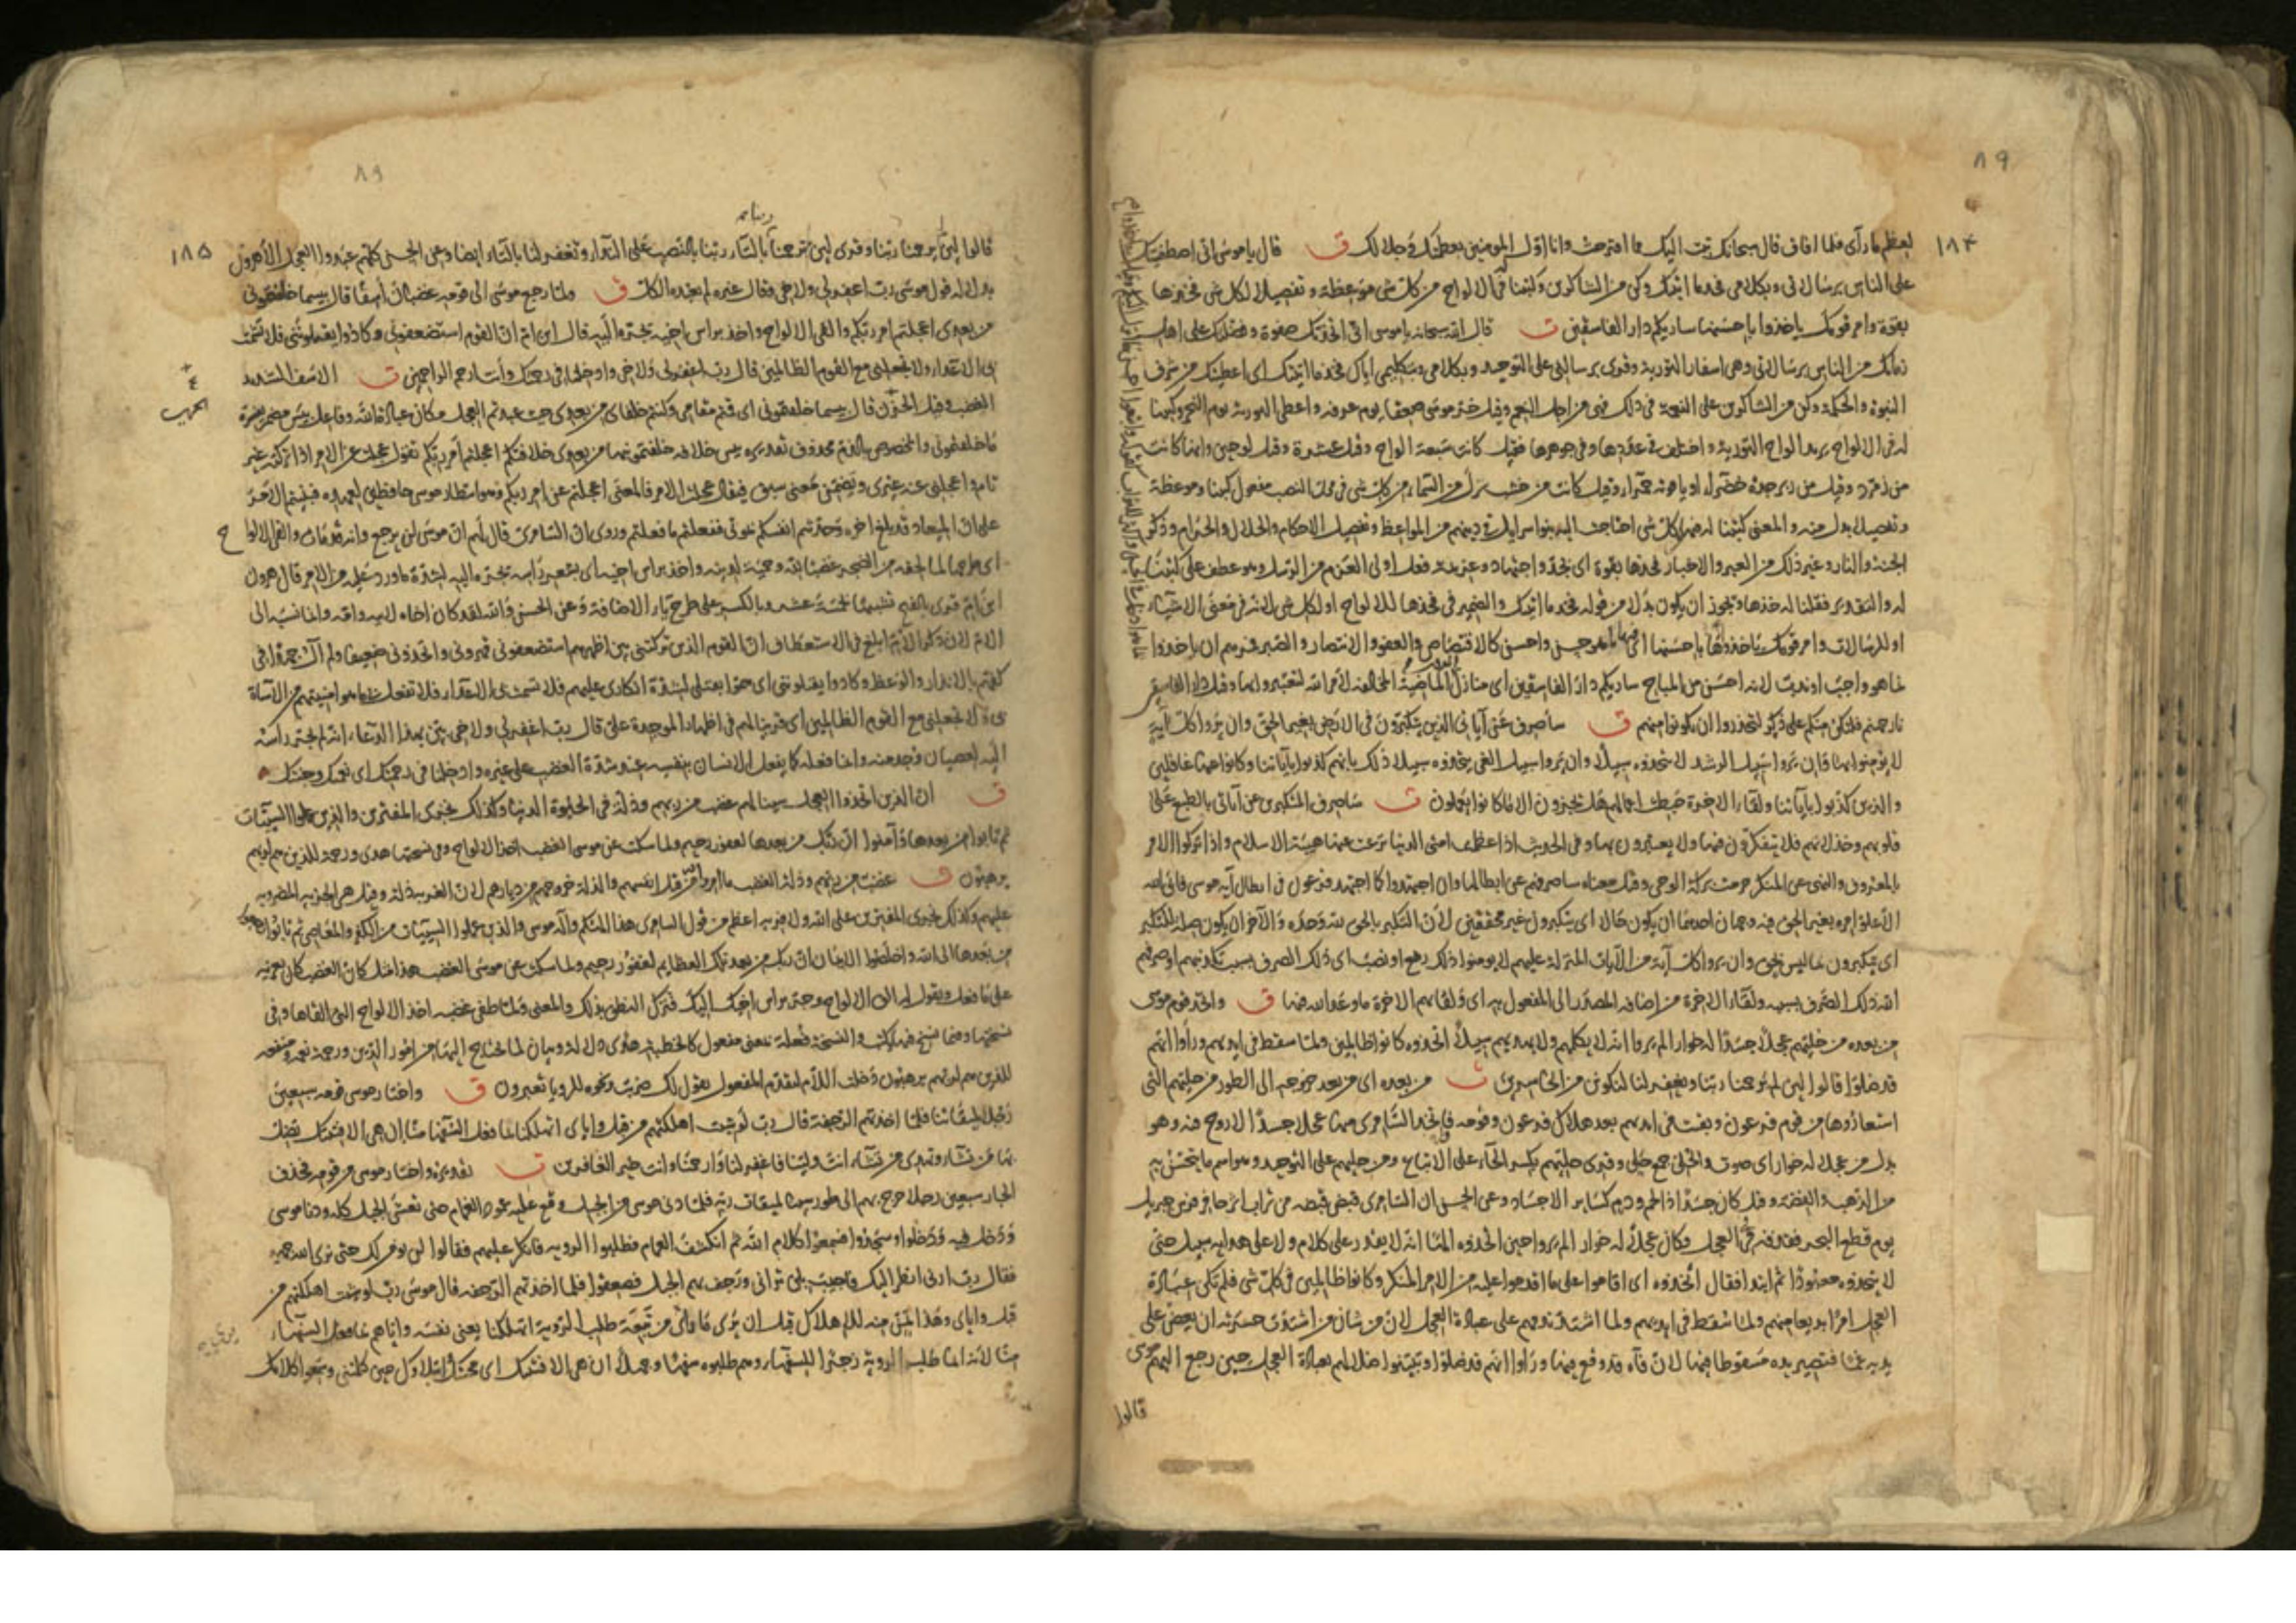 ٨٩
١٨٤
لعظم ما رأى فلما افاق قال سبحانك تبت اليك مما اقترحت وانا اوّل المؤمنين بعظمتك وجلالك ق قال يا موسى اني اصطفيتك
على الناس برسالاتي وبكلامي فخذ ما اتيتك وكن من الشاكرين وكتبنا له في الالواح من كل شي موعظة وتفصيلا لكل شي فخذها
بقوة وامر قومك ياخذوا باحسنها ساريكم دار الفاسقين ت قال الله سبحانه يا موسى اني اتخذتك صفوة وفضلتك على اهل
زمانك من الناس برسالاتي وهي اسفار التورية وقرى برسالتي على التوحيد وبكلامي وبتكليمي اياك فخذ ما اتيتك اي اعطيتك من شرف
النبوة والحكمة وكن من الشاكرين على النعمة في ذلك فهي من اجل النعم وقيل خرّ موسى صعقا يوم عرفة واعطي التورية يوم النحر وكتبنا
له في الالواح يريد الواح التورية واختلف في عددها وفي جوهرها فقيل كانت سبعة الواح وقيل عشرة وقيل لوحين وانها كانت
من زمرد وقيل من زبرجدة خضراء او ياقوتة حمراء وقيل كانت من خشب نزل من السماء من كل شي في محل النصب مفعول كتبنا وموعظة
وتفصيلا بدل منه والمعنى كتبنا له فيها كل شي احتاجت اليه بنو اسرايل في دينهم من المواعظ وتفصيل الاحكام والحلال والحرام وذكر
الجنة والنار وغير ذلك من العبر والاخبار فخذها بقوة اي بجد واجتهاد وعزيمة فعل اولي العزم من الرسل وهو عطف على كتبنا
له والتقدير فقلنا له خذها ويجوز ان يكون بدلا من قوله فخذ ما اتيتك والضمير في فخذها للالواح او لكل شي لانه في معنى الاشياء
او للرسالات وامر قومك ياخذوا باحسنها اي فيها ما هو حسن واحسن كالاقتصاص والعفو والانتصار والصبر فمرهم ان ياخذوا
بما هو واجب او ندب لانه احسن من المباح ساريكم دار الفاسقين اي منازل القرون الماضية المخالفة لامر الله لتعتبروا بها وقيل دار الفاسقين
نار جهنم فلتكن منكم على ذكر لتحذروا ان تكونوا منهم ق سأصرف عن آياتي الذين يتكبرون في الارض بغير الحق وان يروا كل آية
لا يؤمنوا بها وان يروا سبيل الرشد لا يتخذوه سبيلا وان يروا سبيل الغي يتخذوه سبيلا ذلك بانهم كذبوا بآياتنا وكانوا عنها غافلين
والذين كذبوا بآياتنا ولقاء الاخرة حبطت اعمالهم هل يجزون الا ما كانوا يعملون ت ساصرف المتكبرين عن آياتي بالطبع على
قلوبهم وخذلانهم فلا يتفكرون فيها ولا يعتبرون بها وفي الحديث اذا عظمت امتي الدنيا نزعت عنها هيبة الاسلام واذا تركوا الامر
بالمعروف والنهي عن المنكر حرمت بركة الوحي وقيل معناه ساصرفهم عن ابطالها وان اجتهدوا كما اجتهد فرعون في ابطال آية موسى فابى الله
الا علو امره بغير الحق فيه وجهان احدهما ان يكون حالا اي يتكبرون غير محقين لان التكبر بالحق لله وحده والآخر ان يكون صلة للتكبر
اي يتكبرون بما ليس بحق وان يروا كل آية من الآيات المنزلة عليهم لا يومنوا ذلك رفع او نصب اي ذلك الصرف بسبب تكذيبهم او صرفهم
الله ذلك الصرف بسببه ولقاء الاخرة من اضافة المصدر الى المفعول به اي ولقائهم الاخرة وما وعد الله فيها ق واتخذ قوم موسى
من بعده من حليهم عجلا جسدا له خوار الم يروا انه لا يكلمهم ولا يهديهم سبيلا اتخذوه وكانوا ظالمين ولما سقط في ايديهم وراوا انهم
قد ضلوا قالوا لئن لم يرحمنا ربنا ويغفر لنا لنكونن من الخاسرين ت من بعده اي من بعد خروجه الى الطور من حليهم التي
استعاروها من قوم فرعون وبقيت في ايديهم بعد هلاك فرعون وقومه فاتخذ السامري منها عجلا جسدا لا روح فيه وهو
بدل من عجلا له خوار اي صوت والحلي جمع حلي وقرى حليهم بكسر الحاء على الاتباع ومن حليهم على التوحيد وهو اسم ما يتحسن به
من الذهب والفضة وقيل كان جسدا ذا لحم ودم كسائر الاجساد وعن الحسن ان السامري قبض قبضة من تراب اثر حافر فرس جبريل
يوم قطع البحر فقذفه في العجل وكان عجلا له خوار الم يروا حين اتخذوه الها انه لا يقدر على كلام ولا على هداية سبيل حتى
لا يتخذوه معبودا ثم ابتدا فقال اتخذوه اي اقاموا على ما اقدموا عليه من الامر المنكر وكانوا ظالمين في كل شي فلم تكن عبادة
العجل امرا بديعا منهم ولما سقط في ايديهم ولما اشتد ندمهم على عبادة العجل لان من شان من اشتدت حسرته ان يعض على
يديه غما فتصير يده مسقوطا فيها لان فاه قد وقع فيها وراوا انهم قد ضلوا وتبينوا ضلالهم بعبادة العجل حين رجع اليهم موسى
قالوا
٨٩
١٨٥
قالوا لئن لم يرحمنا ربنا وقرى لئن لم ترحمنا بالتاء ربنا بالنصب على النداء وتغفر لنا بالتاء ايضا وعن الحسن كلهم عبدوا العجل الا هرون
بدلالة قول موسى رب اغفر لي ولاخي وقال غيره لم يعبده الكل ق ولما رجع موسى الى قومه غضبان اسفا قال بئسما خلفتموني
من بعدي اعجلتم امر ربكم والقى الالواح واخذ براس اخيه يجره اليه قال ابن ام ان القوم استضعفوني وكادوا يقتلونني فلا تشمت
بي الاعداء ولا تجعلني مع القوم الظالمين قال رب اغفر لي ولاخي وادخلنا في رحمتك وانت ارحم الراحمين ت الاسف الشديد
الغضب وقيل الحزن قال بئسما خلفتموني اي قمتم مقامي وكنتم خلفاي من بعدي حيث عبدتم العجل مكان عبادة الله وفاعل بئس مضمر يفسره
ما خلفتموني والمخصوص بالذم محذوف تقديره بئس خلافة خلفتمونيها من بعدي خلافتكم اعجلتم امر ربكم تقول عجل عن الامر اذا تركه غير
تام واعجلني عنه غيري ويضمن معنى سبق فيقال عجلت الامر فالمعنى اعجلتم عن امر ربكم وهو انتظار موسى حافظين لعهده فبنيتم الامر
على ان الميعاد قد بلغ اخره وحدثتم انفسكم بموتي ففعلتم ما فعلتم وروي ان السامري قال لهم ان موسى لن يرجع وانه قد مات والقى الالواح
اي طرحها لما لحقه من الضجر غضبا لله وحمية لدينه واخذ براس اخيه اي بشعر راسه يجره اليه لشدة ما ورد عليه من الامر قال هرون
ابن ام قرى بالفتح تشبيها بخمسة عشر وبالكسر على طرح ياء الاضافة وعن الحسن والله لقد كان اخاه لابيه وامه وانما نسبه الى
الام لان ذكر الام ابلغ في الاستعطاف ان القوم الذين تركتني بين اظهرهم استضعفوني قهروني واتخذوني ضعيفا ولم آل جهدا في
كفهم بالانذار والوعظ وكادوا يقتلونني اي هموا بقتلي لشدة انكاري عليهم فلا تشمت بي الاعداء فلا تفعل بي ما هو امنيتهم من الاساة
بي ولا تجعلني مع القوم الظالمين اي قرينا لهم في اظهار الموجدة علي قال رب اغفر لي ولاخي بين بهذا الدعاء انه لم يجر راسه
اليه لعصيان وجد منه وانما فعله كما يفعل الانسان بنفسه عند شدة الغضب على غيره وادخلنا في رحمتك اي نعمتك وجنتك
ق ان الذين اتخذوا العجل سينالهم غضب من ربهم وذلة في الحيوة الدنيا وكذلك نجزي المفترين والذين عملوا السيئات
ثم تابوا من بعدها وآمنوا ان ربك من بعدها لغفور رحيم ولما سكت عن موسى الغضب اخذ الالواح وفي نسختها هدى ورحمة للذين هم لربهم
يرهبون ت غضب من ربهم وذلة الغضب ما امروا به من قتل انفسهم والذلة خروجهم من ديارهم لان الغربة ذلة وقيل هي الجزية المضروبة
عليهم وكذلك نجزي المفترين على الله ولا فرية اعظم من قول السامري هذا الهكم واله موسى والذين عملوا السيئات من الكفر والمعاصي ثم تابوا
من بعدها الى الله واخلصوا الايمان ان ربك من بعد تلك العظايم لغفور رحيم ولما سكت عن موسى الغضب هذا مثل كان الغضب كان يغريه
على ما فعل ويقول له الق الالواح وجر براس اخيك اليك فترك النطق بذلك والمعنى ولما طفي غضبه اخذ الالواح التي القاها وفي
نسختها وفيما نسخ فيها كتب والنسخة فعلة بمعنى مفعول كالخطبة هدى دلالة وبيان لما يحتاج اليها من امور الدين ورحمة نعمة ومنفعة
للذين هم لربهم يرهبون دخلت اللام لتقدم المفعول تقول لك ضربت ونحوه للرويا تعبرون ق واختار موسى قومه سبعين
رجلا لميقاتنا فلما اخذتهم الرجفة قال رب لو شئت اهلكتهم من قبل واياي اتهلكنا بما فعل السفهاء منا ان هي الا فتنتك تضل
بها من تشاء وتهدي من تشاء انت ولينا فاغفر لنا وارحمنا وانت خير الغافرين ت تقديره واختار موسى من قومه فحذف
الجار سبعين رجلا خرج بهم الى طور سينا لميقات ربه فلما دنا موسى من الجبل وقع عليه عمود الغمام حتى تغشى الجبل كله ودنا موسى
ودخل فيه ودخلوا وسجدوا فسمعوا كلام الله ثم انكشف الغمام فطلبوا الروية فانكر عليهم فقالوا لن نومن لك حتى نرى الله جهرة
فقال رب ارني انظر اليك فاجيب بلن تراني ورجف بهم الجبل فصعقوا فلما اخذتهم الرجفة قال موسى رب لو شئت اهلكتهم من
قبل واياي وهذا تمن منه للاهلاك قبل ان يرى ما راى من تبعة طلب الروية اتهلكنا يعني نفسه واياهم بما فعل السفهاء
منا لانه انما طلب الروية زجرا للسفهاء وهم طلبوه سفها وجهلا ان هي الا فتنتك اي محنتك وابتلاؤك حين كلمتني وسمعوا كلامك